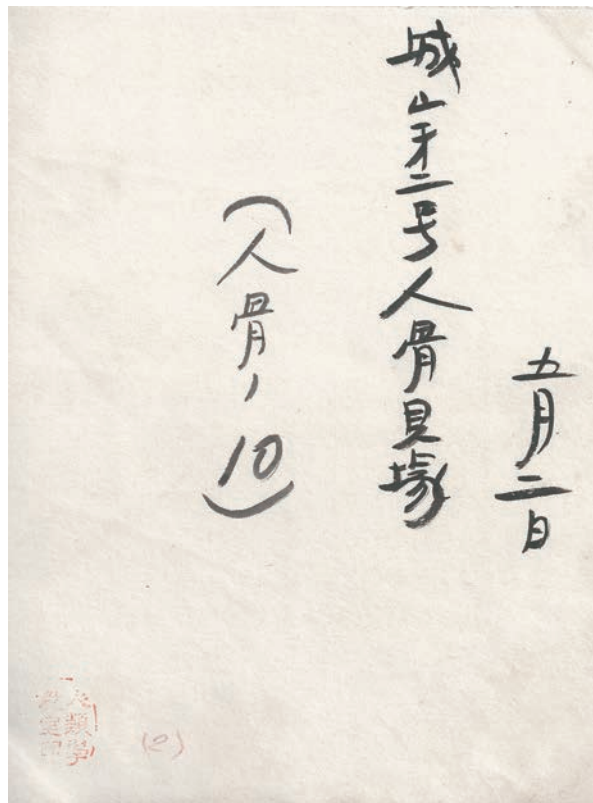 五月二日
城山才二号人骨貝塚
（人骨ノ10）
人類學
教室印
(2)